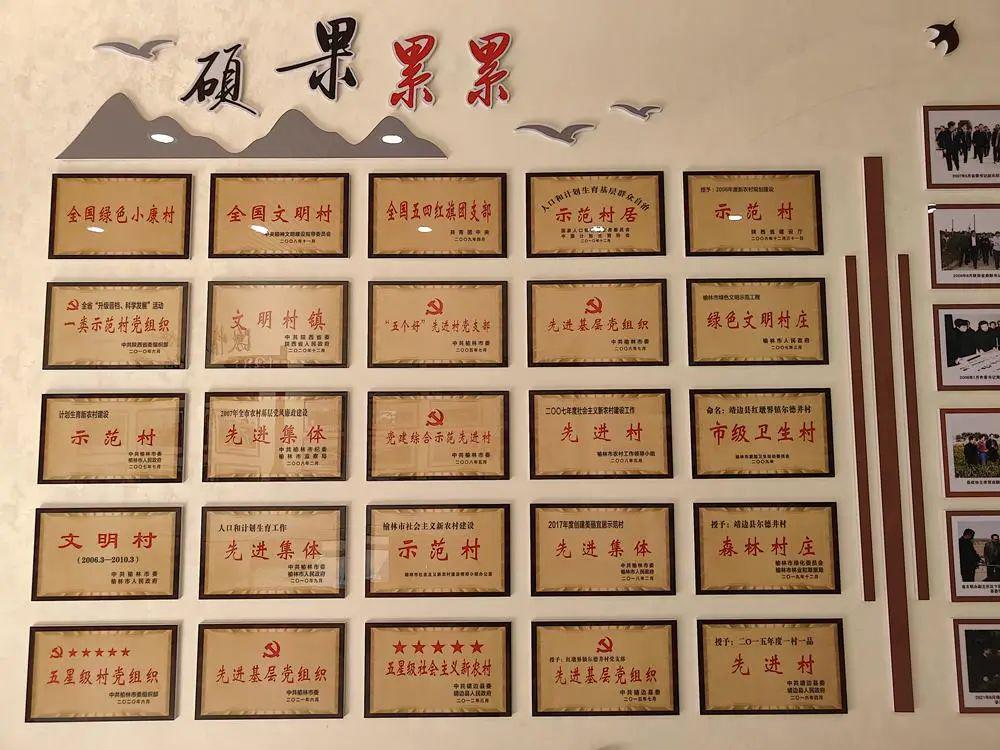 硕果累累
全国绿色小康村
全国文明村
中央精神文明建设指导委员会
二〇〇八年十一月
全国五四红旗团支部
共青团中央
二〇〇九年四月
人口和计划生育基层群众自治
示范村居
二〇一〇年十二月
授予：2006年度新农村规划建设
示范村
陕西省建设厅
二〇〇六年十二月三十一日
全省“升级晋档、科学发展”活动
一类示范村党组织
中共陕西省委组织部
二〇一〇年六月
文明村镇
中共陕西省委
陕西省人民政府
二〇二〇年十二月
“五个好”先进村党支部
中共榆林市委
二〇〇五年七月
先进基层党组织
中共榆林市委
二〇〇六年七月
榆林市绿色文明示范工程
绿色文明村庄
榆林市人民政府
二〇〇七年三月
计划生育新农村建设
示范村
中共榆林市委
榆林市人民政府
二〇〇七年七月
2007年全市农村基层党风廉政建设
先进集体
中共榆林市纪委
榆林市监察局
二〇〇八年二月
党建综合示范先进村
中共榆林市委
二〇〇八年五月
二〇〇七年度社会主义新农村建设工作
先进村
榆林市农村工作领导小组
二〇〇八年五月
命名：靖边县红墩界镇尔德井村
市级卫生村
榆林市爱国卫生运动委员会
二〇〇九年
文明村
(2006.3—2010.3)
中共榆林市委
榆林市人民政府
人口和计划生育工作
先进集体
中共榆林市委
榆林市人民政府
二〇一〇年九月
榆林市社会主义新农村建设
示范村
榆林市社会主义新农村建设领导小组办公室
2017年度创建美丽宜居示范村
先进集体
中共榆林市委
榆林市人民政府
二〇一八年二月
授予：靖边县尔德井村
森林村庄
榆林市绿化委员会
榆林市林业和草原局
二〇一九年十二月
五星级村党组织
中共榆林市委组织部
二〇二〇年六月
先进基层党组织
中共榆林市委
二〇二一年六月
五星级社会主义新农村
中共靖边县委
靖边县人民政府
二〇一二年三月
授予：红墩界镇尔德井村党支部
先进基层党组织
中共靖边县委
二〇一五年七月
授予：二〇一五年度一村一品
先进村
中共靖边县委
靖边县人民政府
二〇一六年四月